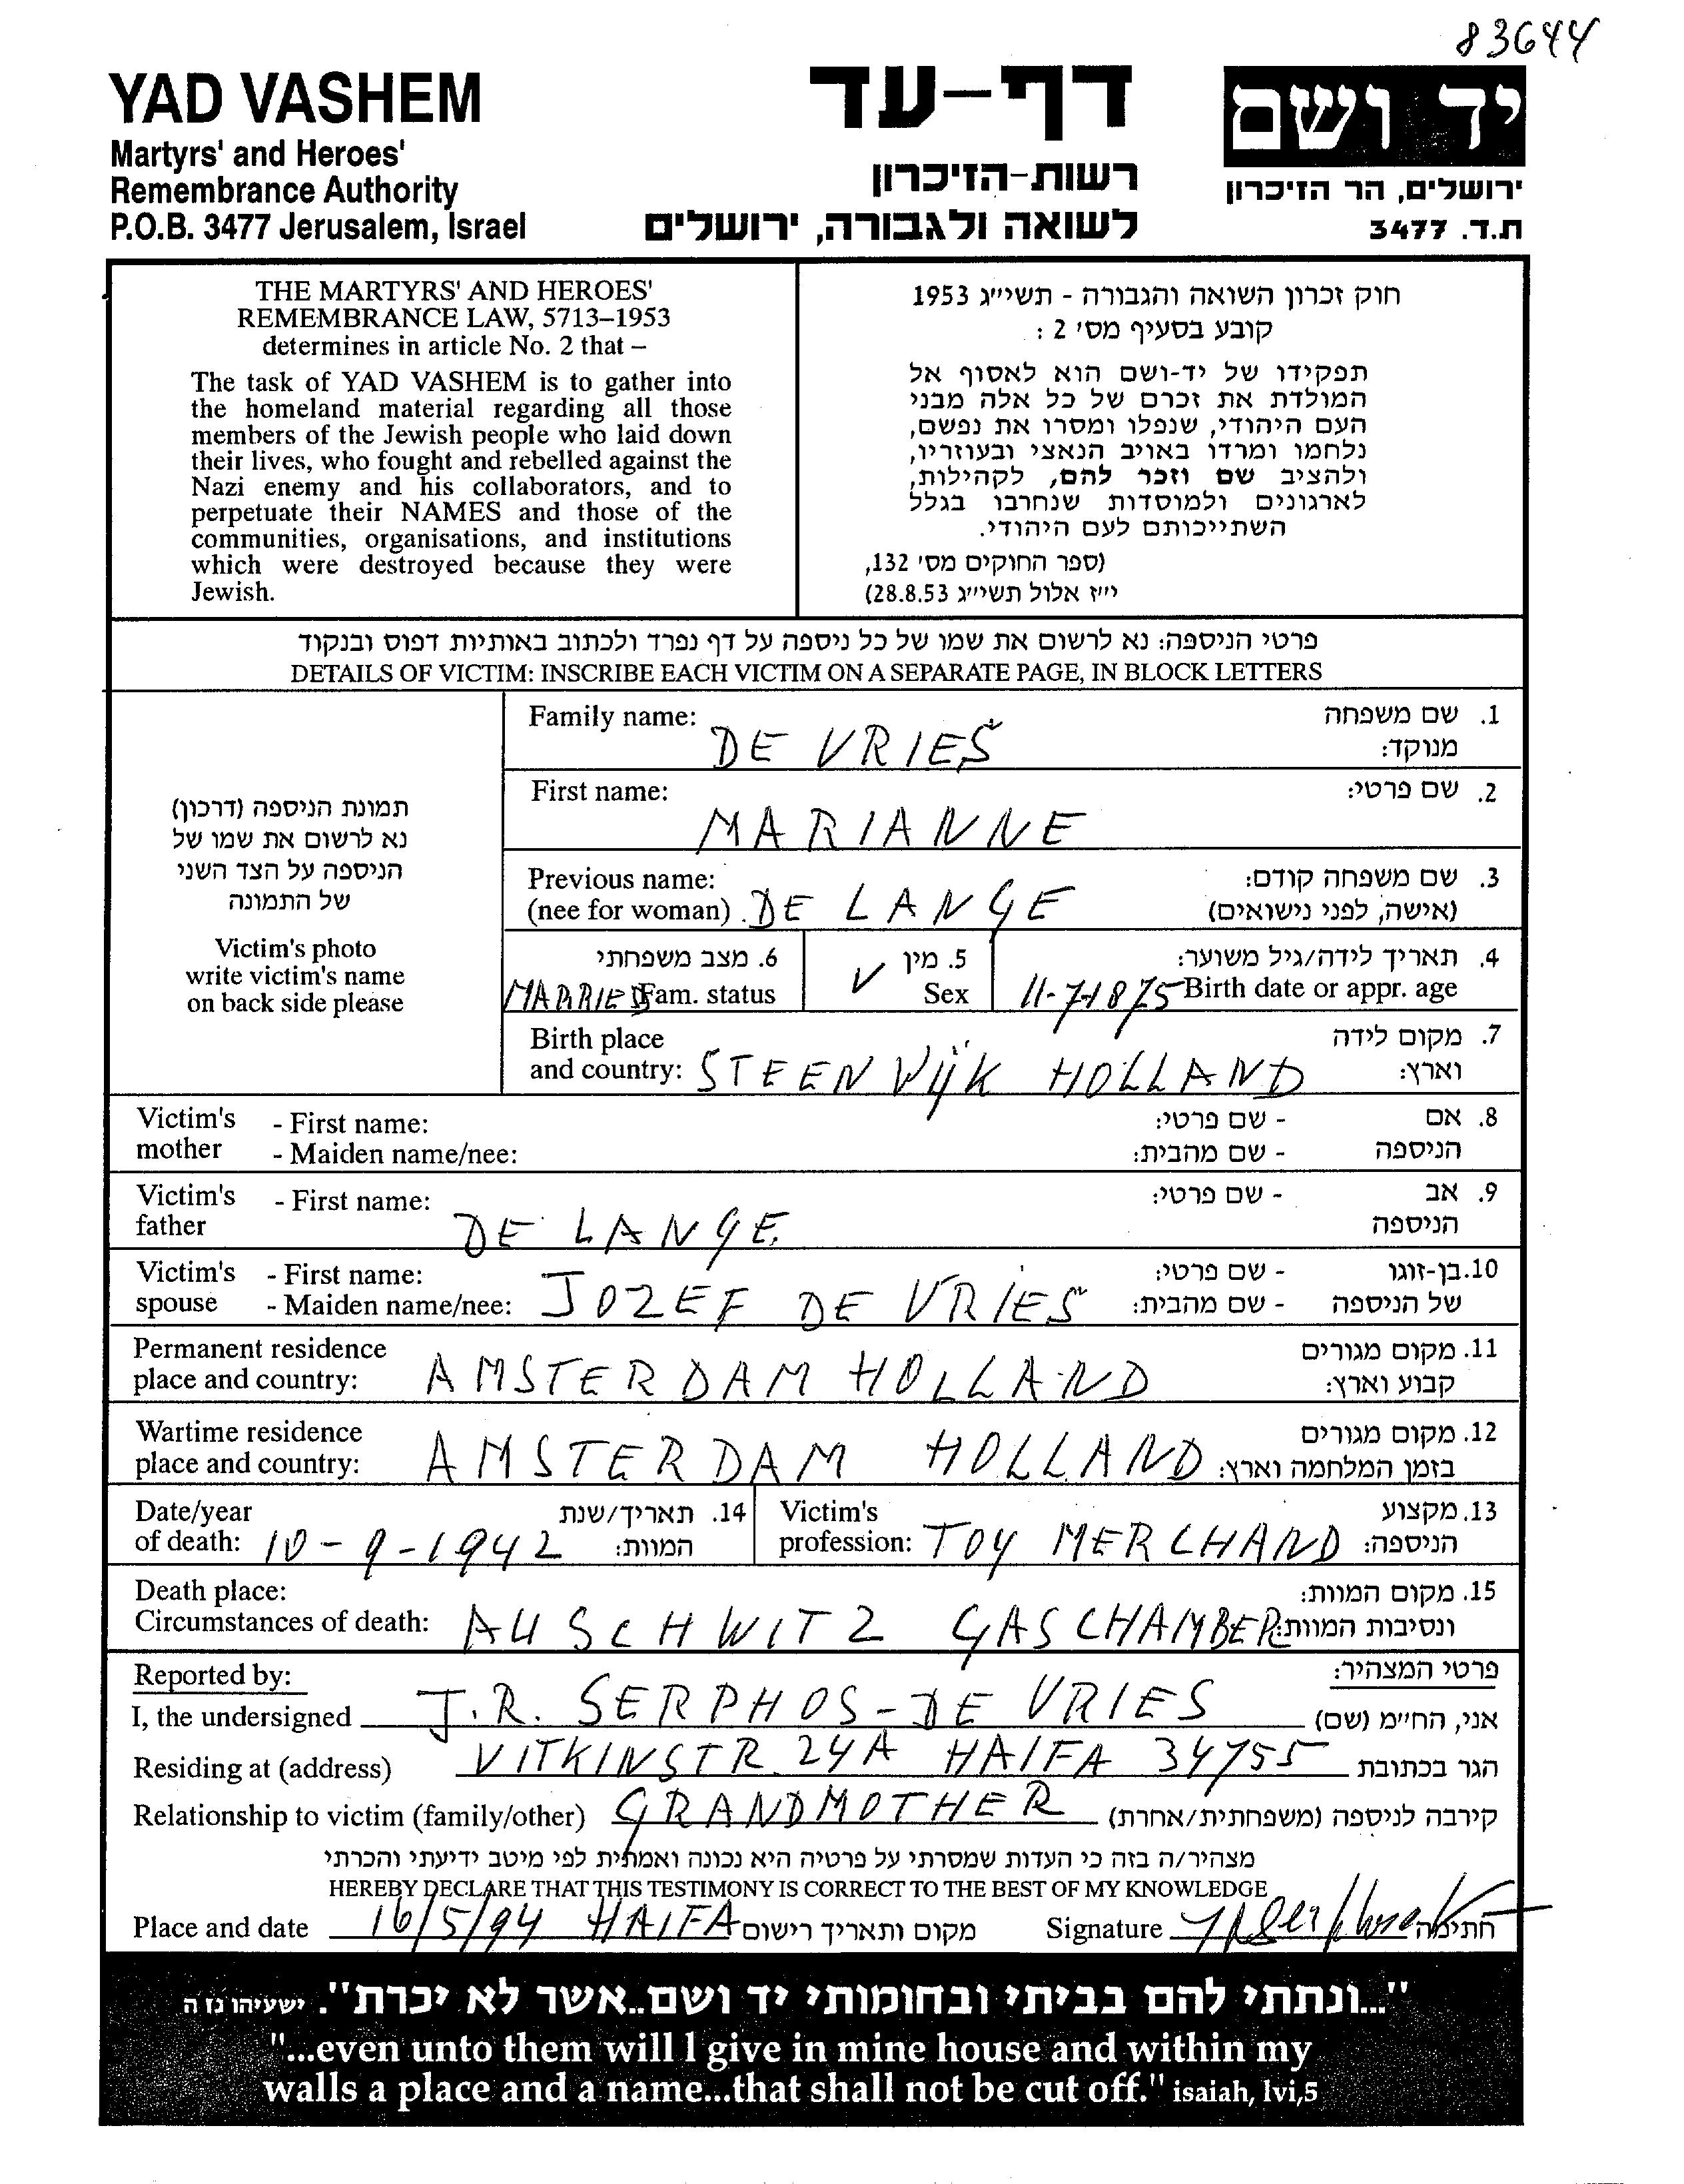 83644
YAD VASHEM
Martyrs' and Heroes'
Remembrance Authority
P.O.B. 3477 Jerusalem, Israel
דף-עד
רשות-הזיכרון
לשואה ולגבורה, ירושלים
יד ושם
ירושלים, הר הזיכרון
ת.ד. 3477
THE MARTYRS' AND HEROES'
REMEMBRANCE LAW, 5713–1953
determines in article No. 2 that –
The task of YAD VASHEM is to gather into
the homeland material regarding all those
members of the Jewish people who laid down
their lives, who fought and rebelled against the
Nazi enemy and his collaborators, and to
perpetuate their NAMES and those of the
communities, organisations, and institutions
which were destroyed because they were
Jewish.
חוק זכרון השואה והגבורה - תשי״ג 1953
קובע בסעיף מס' 2 :
תפקידו של יד-ושם הוא לאסוף אל
המולדת את זכרם של כל אלה מבני
העם היהודי, שנפלו ומסרו את נפשם,
נלחמו ומרדו באויב הנאצי ובעוזריו,
ולהציב שם וזכר להם, לקהילות,
לארגונים ולמוסדות שנחרבו בגלל
השתייכותם לעם היהודי.
(ספר החוקים מס' 132,
י״ז אלול תשי״ג 28.8.53)
פרטי הניספה: נא לרשום את שמו של כל ניספה על דף נפרד ולכתוב באותיות דפוס ובנקוד
DETAILS OF VICTIM: INSCRIBE EACH VICTIM ON A SEPARATE PAGE, IN BLOCK LETTERS
תמונת הניספה (דרכון)
נא לרשום את שמו של
הניספה על הצד השני
של התמונה
Victim's photo
write victim's name
on back side please
Family name: DE VRIES 1. שם משפחה
מנוקד:
First name: MARIANNE 2. שם פרטי:
Previous name: 3. שם משפחה קודם:
(nee for woman) DE LANGE (אישה, לפני נישואים)
6. מצב משפחתי 5. מין 4. תאריך לידה/גיל משוער:
MARRIED Fam. status ✓ Sex 11-7-1875 Birth date or appr. age
Birth place 7. מקום לידה
and country: STEENWIJK HOLLAND וארץ:
Victim's - First name: - שם פרטי: 8. אם
mother - Maiden name/nee: - שם מהבית: הניספה
Victim's - First name: - שם פרטי: 9. אב
father DE LANGE הניספה
Victim's - First name: - שם פרטי: 10. בן-זוגו
spouse - Maiden name/nee: JOZEF DE VRIES - שם מהבית: של הניספה
Permanent residence 11. מקום מגורים
place and country: AMSTERDAM HOLLAND קבוע וארץ:
Wartime residence 12. מקום מגורים
place and country: AMSTERDAM HOLLAND בזמן המלחמה וארץ:
Date/year 14. תאריך/שנת Victim's 13. מקצוע
of death: 10-9-1942 המוות: profession: TOY MERCHAND הניספה:
Death place: 15. מקום המוות:
Circumstances of death: AUSCHWITZ GASCHAMBER ונסיבות המוות:
Reported by: פרטי המצהיר:
I, the undersigned J.R. SERPHOS-DE VRIES אני, החי״מ (שם)
Residing at (address) VITKINSTR. 24A HAIFA 34755 הגר בכתובת
Relationship to victim (family/other) GRANDMOTHER קירבה לניספה (משפחתית/אחרת)
מצהיר/ה בזה כי העדות שמסרתי על פרטיה היא נכונה ואמתית לפי מיטב ידיעתי והכרתי
HEREBY DECLARE THAT THIS TESTIMONY IS CORRECT TO THE BEST OF MY KNOWLEDGE
Place and date 16/5/94 HAIFA מקום ותאריך רישום Signature חתימה
"...ונתתי להם בביתי ובחומותי יד ושם..אשר לא יכרת". ישעיהו נז ה
"...even unto them will I give in mine house and within my
walls a place and a name...that shall not be cut off." isaiah, lvi,5